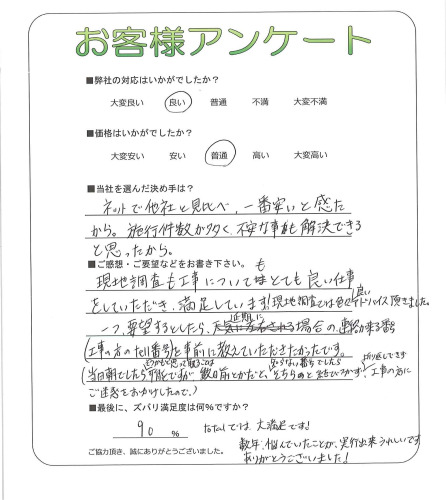 お客様アンケート
■弊社の対応はいかがでしたか？
大変良い 良い 普通 不満 大変不満
■価格はいかがでしたか？
大変安い 安い 普通 高い 大変高い
■当社を選んだ決め手は？
ネットで他社と見比べ、一番安いと感た
から。施行件数が多く、不安な事も解決できる
と思ったから。
■ご感想・ご要望などをお書き下さい。
現地調査も工事についてもとても良い仕事
をしていただき、満足しています！現地調査では良いアドバイス頂きました。
一つ、要望するとしたら、延期になる場合の連絡が来る番
(工事の方のtel番号)を事前に教えていただきたかったです。
(当日朝でしたら
ご迷惑をおかけしたので。)
■最後に、ズバリ満足度は何％ですか？
90 ％ 大満足です！
数年、悩んでいたことが、実行出来うれしいです
ありがとうございました！
ご協力頂き、誠にありがとうございました。